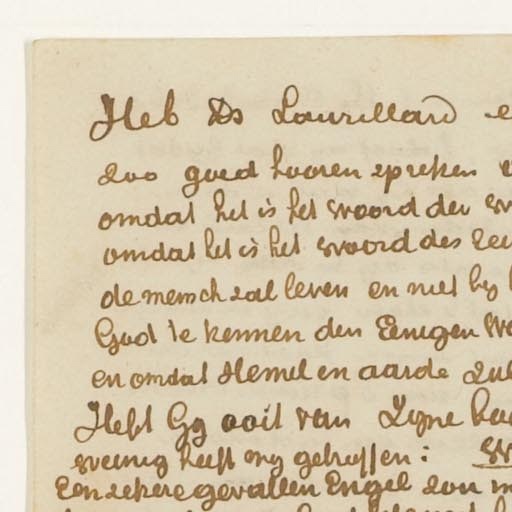 Heb Ds Laurillard e
zoo goed hooren spreken v
omdat het is het woord der w
omdat het is het woord des Lev
de mensch zal leven en niet by b
God te kennen den Eenigen Wa
en omdat Hemel en aarde zul
Hebt Gy ooit van Zyne
weinig heeft my getroffen: w
Een zekere gevallen Engel zou m